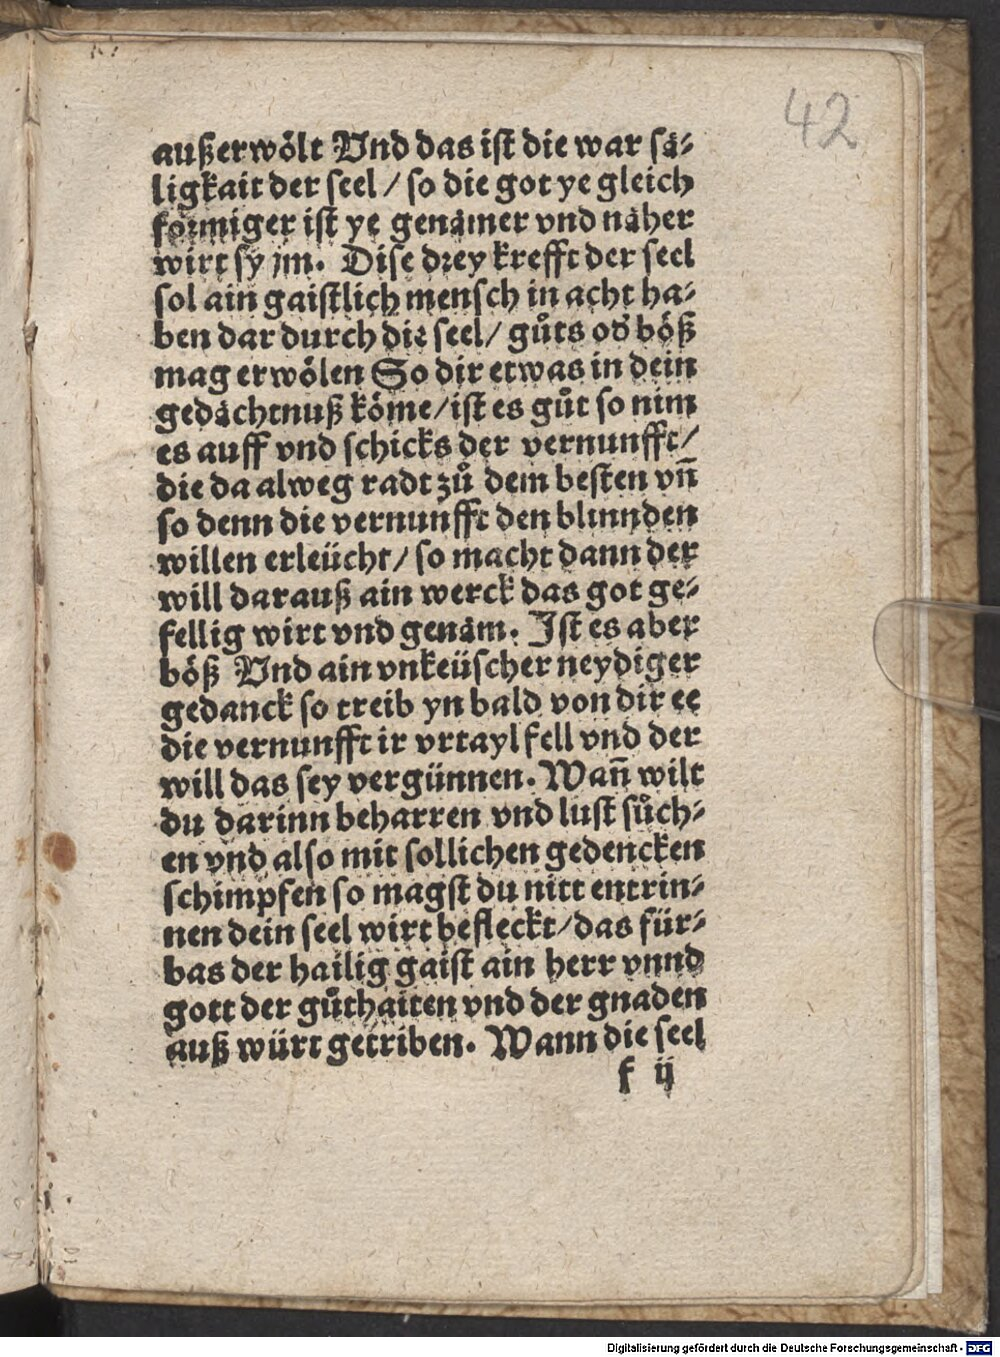 42
außerwölt Vnd das ist die war sä-
ligkait der seel / so die got ye gleich
förmiger ist ye genämer vnd näher
wirt sy jm. Dise drey krefft der seel
sol ain gaistlich mensch in acht ha-
ben dar durch die seel / gůts od' böß
mag erwölen So dir etwas in dein
gedächtnuß köme / ist es gůt so nim
es auff vnd schicks der vernunfft /
die da alweg radt zů dem besten vn̄
so denn die vernunfft den blinnden
willen erleücht / so macht dann der
will darauß ain werck das got ge-
fellig wirt vnd genäm. Ist es aber
böß Vnd ain vnkeüscher neydiger
gedanck so treib yn bald von dir ee
die vernunfft ir vrtayl fell vnd der
will das sey vergünnen. Wan̄ wilt
du darinn beharren vnd lust sůch-
en vnd also mit sollichen gedencken
schimpfen so magst du nitt entrin-
nen dein seel wirt befleckt / das für-
bas der hailig gaist ain herr vnnd
gott der gůthaiten vnd der gnaden
auß würt getriben. Wann die seel
f ij
Digitalisierung gefördert durch die Deutsche Forschungsgemeinschaft - DFG